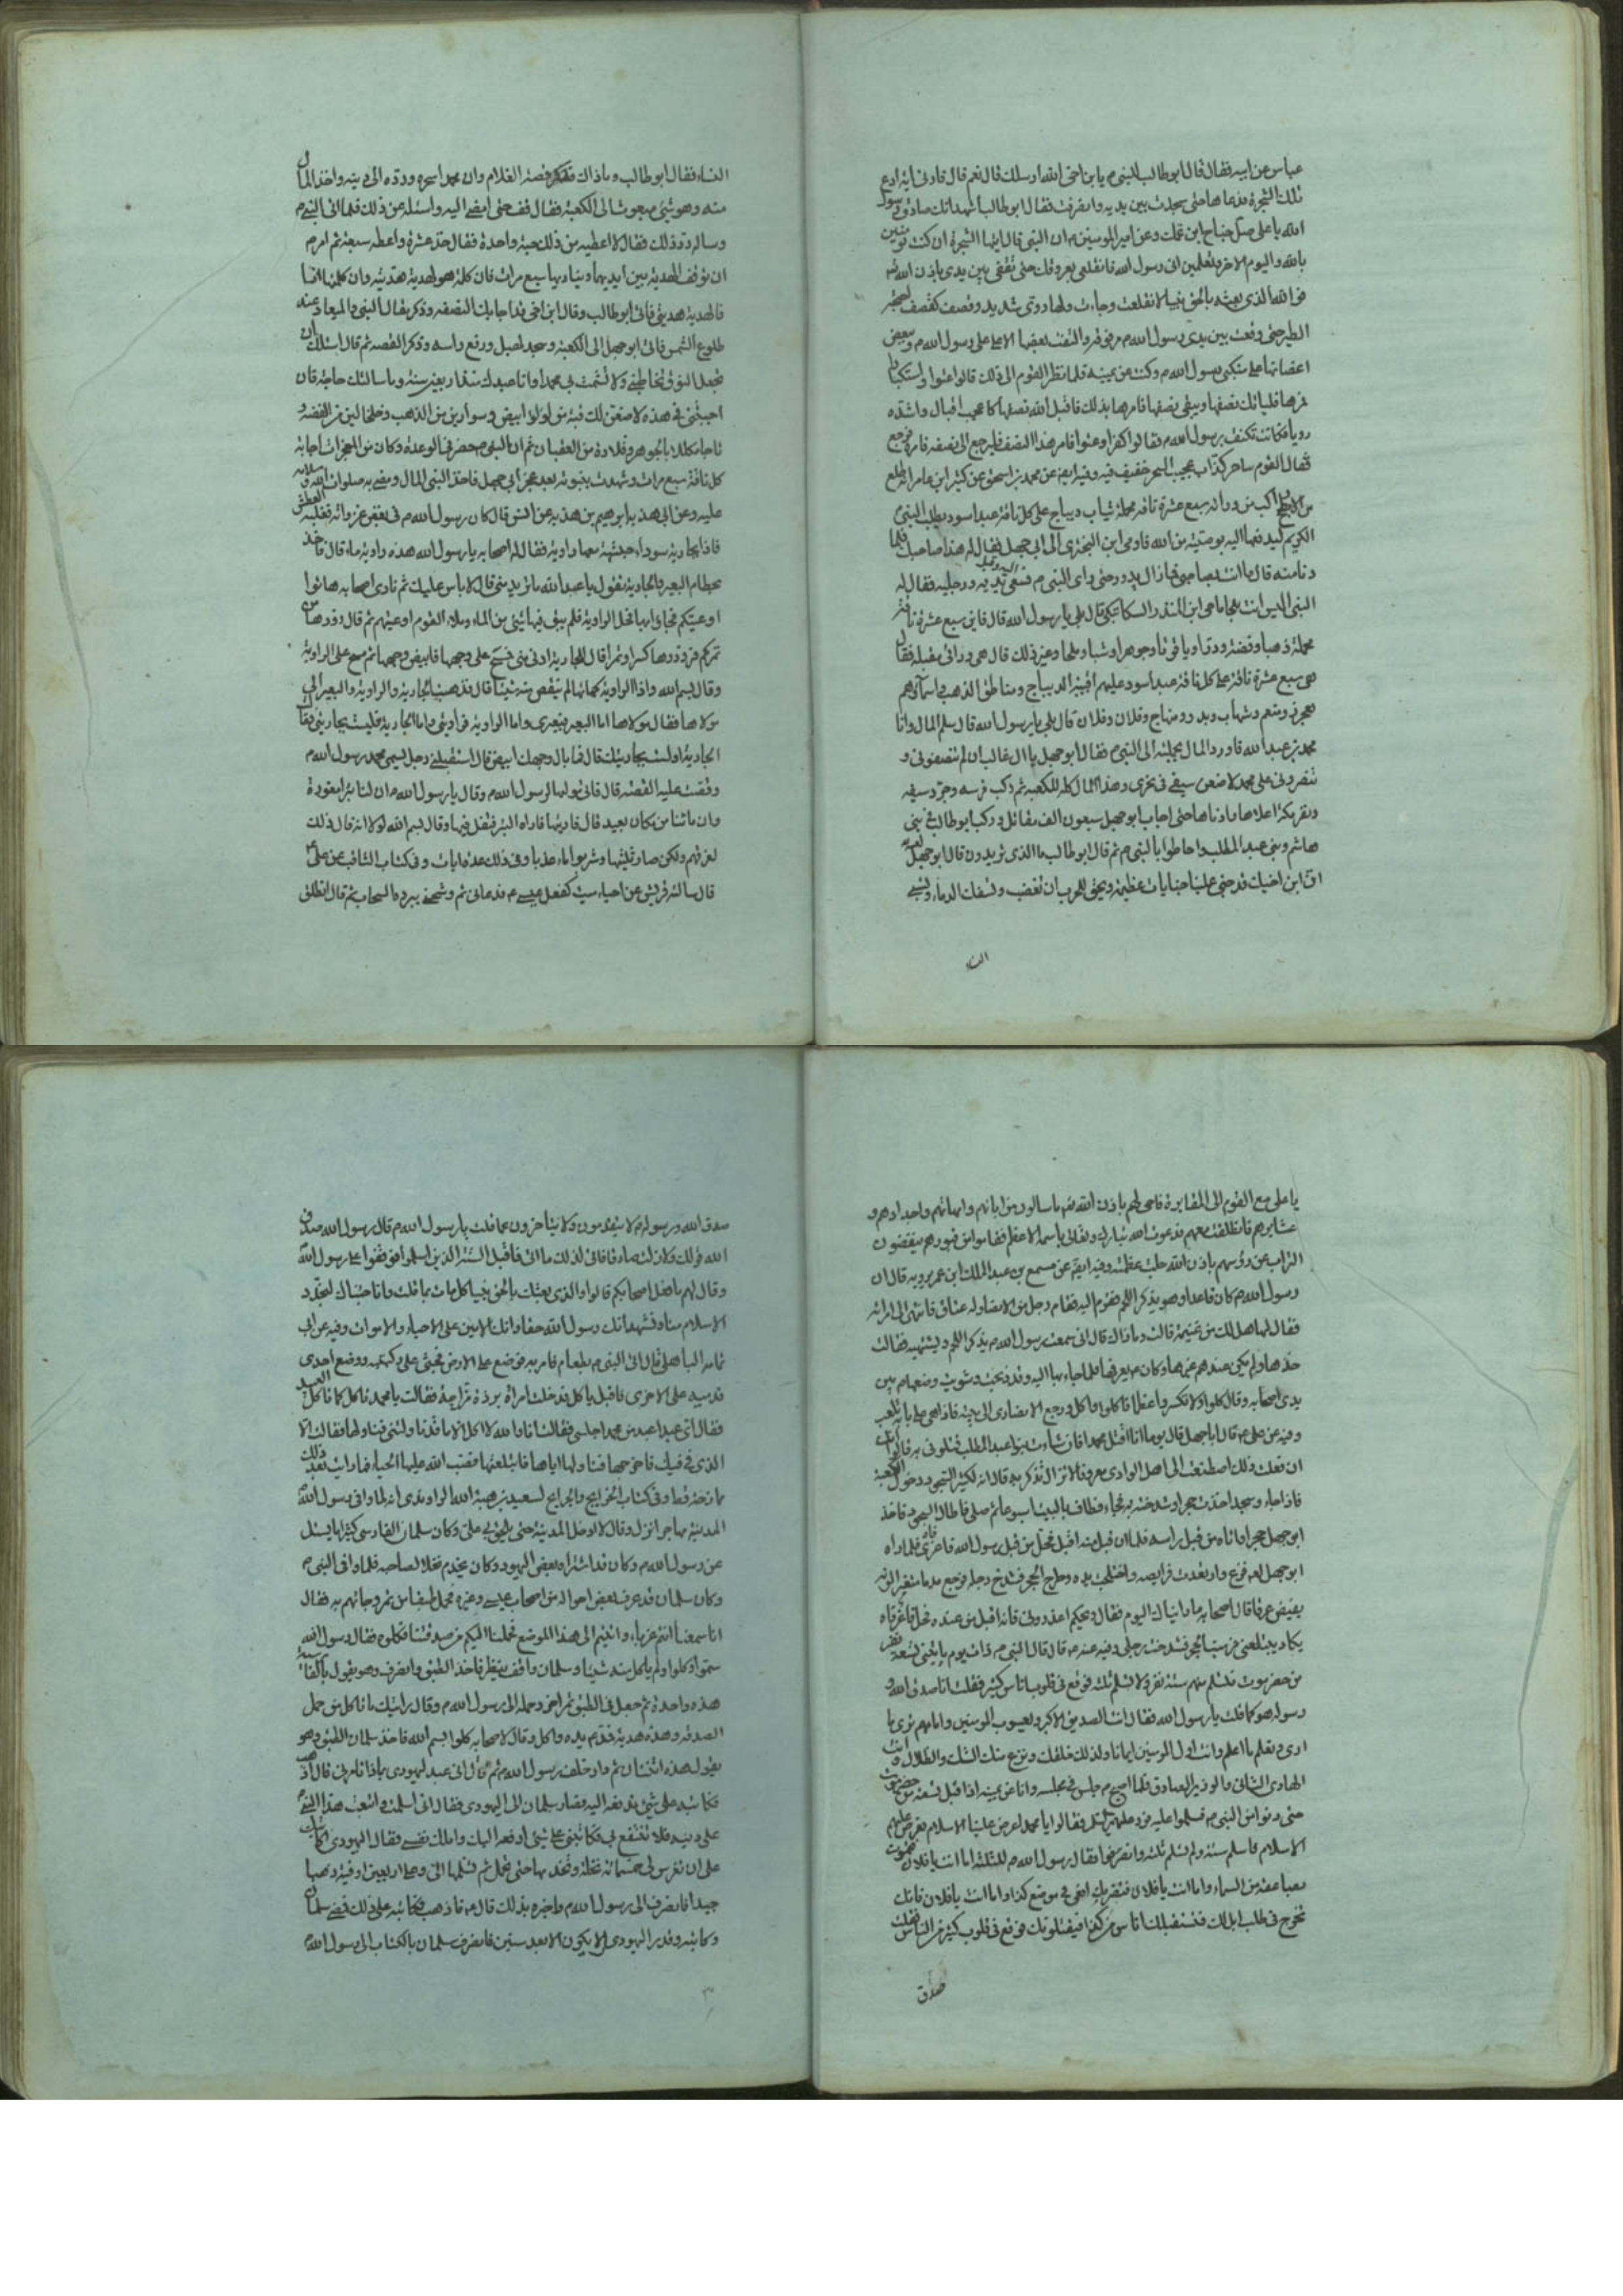 عباس عن ابيه فقال قال ابو طالب للنبى م يابن اخى الله ارسلك قال نعم قال فارنى اية ادع
تلك الشجرة فدعاها حتى سجدت بين يديه وانصرفت فقال ابو طالب اشهد انك صادق رسول
الله يا على صل جناح ابن عمك وعن امير المومنين م ان النبى قال ايتها الشجرة ان كنت تومنين
بالله واليوم الاخر وتعلمين انى رسول الله فانقلعى بعروقك حتى تقفى بين يدى باذن الله
فو الله الذى بعثه بالحق نبيا لانقلعت وجاءت ولها دوى شديد وقصف كقصف اجنحة
الطير حتى وقعت بين يدى رسول الله م والقت بعضها الاعلى على رسول الله م وببعض
اعضانها على منكبى رسول الله م وكنت عن يمينه فلما نظر القوم الى ذلك قالوا علوا واستكبارا
مرها فلياتك نصفها ويبقى نصفها فامرها بذلك فاقبل اليه نصفها كاعجب اقبال واشده
رويا فكانت تكنف برسول الله م فقالوا كفرا وعتوا فامر هذا النصف فليرجع الى نصفه فامره فرجع
فقال القوم ساحر كذاب عجيب السحر خفيف فيه وفيه ايضا عن محمد بن اسحق عن كثير ابن عامر انه طلع
من الابطح راكب من ورائه سبع عشرة ناقة محملة ثياب ديباج على كل ناقة عبد اسود يطلب النبى
الكريم ليدفعها اليه بوصية من الله فاومى ابن البخترى الى ابى جهل فقال له هذا صاحبك فلما
دنا منه قال ما انت بصاحبى فما زال يدور حتى راى النبى م فسعى اليه وقبل يديه ورجليه فقال له
النبى اليس انت ناجى ابن المنذر السكاسكى قال بلى يا رسول الله قال فاين سبع عشرة ناقة
محملة ذهبا وفضة ودرا وياقوتا وجوهرا وشبا وملحا وغير ذلك قال هى ورائى مقبلة فقال
هى سبع عشرة ناقة على كل ناقة عبد اسود عليهم اقبية الديباج ومناطق الذهب واسمائهم
محرز ومنعم وشهاب وبدر ومنهاج وفلان وفلان قال بلى يا رسول الله قال سلم المال وانا
محمد بن عبد الله فاورد المال بجملته الى النبى م فقال ابو جهل يا ال غالب ان لم تنصفونى و
تنصرونى على محمد لاضعن سيفى فى نحرى وهذا المال كله للكعبة ثم ركب فرسه وجرد سيفه
ونفر مكة اعلاها وادناها حتى اجاب ابو جهل سبعون الف مقاتل وركب ابو طالب فى بنى
هاشم وبنى عبد المطلب واحاطوا بالنبى م ثم قال ابو طالب ما الذى تريدون قال ابو جهل
ان ابن اخيك قد جنى علينا جنايات عظيمة ويحق للعرب ان تغضب وتسفك الدماء وتسبى
النساء
النساء فقال ابو طالب وما ذاك فذكر قصة الغلام وان محمدا سحره ورده الى دينه واخذ المال
منه وهو شئ مبعوث الى الكعبة فقال قف حتى امضى اليه واسئله عن ذلك فلما اتى النبى م
وساله رد ذلك فقال لا اعطيه من ذلك حبة واحدة فقال خذ عشرة واعطه سبعة ثم امر م
ان توقف الهدية بين ايديهما ويناديها سبع مرات فان كلمته فهو الهدية هديته وان كلمتها انا
فالهدية هديتى فاتى ابو طالب وقال ابن اخى قد اجابك النصفه وذكر مقال النبى والميعاد عند
طلوع الشمس فاتى ابو جهل الى الكعبة وسجد لهبل ورفع راسه وذكر القصة ثم قال اسئلك ان
تجعل النوق تخاطبنى ولا تشمت بى محمدا وانا عبدك منذ اربعين سنة وما سالتك حاجة فان
اجبتنى فى هذه لاضعن لك قبة من لؤلؤ ابيض وسوارين من الذهب وخلخالين من الفضة و
تاجا مكللا بالجوهر وقلادة من العقيان ثم ان النبى م حضر فى الوعدة وكان من المعجزات اجابة
كل ناقة سبع مرات وشهدت بنبوته بعد عجز ابى جهل فاخذ النبى المال ومضى به صلوات الله وسلامه
عليه وعن ابى هدبة ابراهيم بن هدبة عن انس قال كان رسول الله م فى بعض غزواته فغلبه العطش
فاذا بجارية سوداء حبشية معها راوية فقال له اصحابه يا رسول الله هذه راوية ماء قال فاخذ
بخطام البعير فالجارية تقول يا عبد الله ما تريد منى قال لا باس عليك ثم نادى اصحابه هاتوا
اوعيتكم فجاؤا بها فحل الراوية فلم يبق فيها شئ من الماء وملاء القوم اوعيتهم ثم قال زودوها من
تمركم فزودوها كسرا وتمرا قال للجارية ادنى منى فمسح على وجهها فابيض وجهها ثم مسح على الراوية
وقال بسم الله واذا الراوية كهيئتها لم ينقص منه شيئا قال فذهبت الجارية والراوية والبعير الى
مولاها فقال مولاها اما البعير فبعيرى واما الراوية فراويتى واما الجارية فليست بجاريتى فقالت
الجارية اولست بجاريتك قال فما بال وجهك ابيض قال استقبلنى رجل يسمى محمد رسول الله م
وقصت عليه القصة قال فاتى مولها لرسول الله م وقال يا رسول الله م ان لنا بئرا مغورة
وان مائنا من مكان بعيد قال فارنيها فاراه البئر فتفل فيها وقال بسم الله لولا انه قال ذلك
لغرقهم ولكن صار ثلثيها وشربوا ماء عذبا وفى ذلك عدة ايات وفى كتاب الثاقب عن على
قال سالته قريش عن احياء ميت كفعل عيسى م فدعانى ثم وشحنى ببرده السحاب ثم قال انطلق
يا على مع القوم الى المقابر فاحى لهم باذن الله من سالوك من ابائهم وامهاتهم واجدادهم و
عشايرهم فانطلقت معهم فدعوت الله تبارك وتعالى باسمه الاعظم فقاموا من قبورهم ينفضون
التراب عن رؤسهم باذن الله جلت عظمته وفيه ايضا عن مسمع بن عبد الملك ابن عم بريه قال ان
رسول الله م كان قاعدا وهو يذكر اللحم فقوم اليه فقام رجل من الانصار وله عناق فانتهى الى امراته
فقال لها هل لك من غنيمة قالت وما ذاك قال انى سمعت رسول الله م يذكر اللحم ويشتهيه فقالت
خذها ولم يكن عندهم غيرها وكان م يعرفها فلما جاء بها اليه وقد ذبحت وشويت وضعها م بين
يدى اصحابه وقال كلوا ولا تكسروا عظما فاكلوا واكل ورجع الانصارى الى بيته فاذا هى على بابه تلعب
وفيه عن على م قال ابا جهل قال يوما انا اقتل محمدا فان شاءت بنوا عبد المطلب قتلونى به قالوا انك
ان فعلت ذلك اصطنعت الى اهل الوادى معروفا لا تزال تذكر به قال انه لكثير السجود دخول الكعبة
فاذا جاء وسجد اخذت حجرا وشدخته به فجاء فطاف بالبيت اسبوعا ثم صلى فاطال السجود فاخذ
ابو جهل حجرا واتاه من قبل راسه فلما ان قبل منه اقبل فحل من قبل رسول الله فاغرا فاه فلما راه
ابو جهل لعنه فزع وارتعدت فرايصه واختلجت يده وطرح الحجر فشدخ رجله فرجع مدما متغير اللون
يفيض عرقا قال اصحابه ما راينا كاليوم فقال ويحكم اعذرونى فانه اقبل من عنده فحل فاغرا فاه
يكاد يبتلعنى فرميت بالحجر فشدخت رجلى وفيه عنه م قال قال النبى م ذات يوم ياتينى تسعة نفر
من حضرموت فيسلم منهم ستة نفر ولا تسلم ثلثه فوقع فى قلوب اناس كثير فقلت انا صدق الله و
رسوله هو كما قلت يا رسول الله فقال انت الصديق الاكبر ويعسوب المومنين وامامهم ترى ما
ارى وتعلم ما اعلم وانت اول المومنين ايمانا ولذلك خلقك ونزع منك الشك والضلال وانت
الهادى الثانى والوزير الصادق فلما اصبح م جلس فى مجلسه وانا عن يمينه اذا اقبل تسعة من حضرموت
حتى دنوا من النبى م فسلموا عليه فرد عليهم السلم وقالوا يا محمد اعرض علينا الاسلام فعرض عليهم
الاسلام فاسلم ستة ولم تسلم ثلثه وانصرفوا فقال رسول الله م للثلثة اما انت يا فلان فتموت
بصاعقة من السماء واما انت يا فلان فتضربك افعى فى موضع كذا واما انت يا فلان فانك
تخرج فى طلب ابل لك فتستقبلك اناس من كذا فيقتلونك فوقع فى قلوب كثير من الناس فقلت
صدق
صدق الله ورسوله لا يتقدمون ولا يتاخرون عما قلت يا رسول الله م قال رسول الله صدق
الله قولك ولا زلت صادقا فاتى لذلك ما اتى فاقبل الستة الذين اسلموا فوقفوا على رسول الله
وقال لهم ما فعل اصحابكم قالوا والذى بعثك بالحق نبيا كل مات بما قلت وانا جئناك لنجدد
الاسلام منا ونشهد انك رسول الله حقا وانك الامين على الاحياء والاموات وفيه عن ابى
ثمامه الباهلى قال اتى النبى م بطعام فامر به فوضع على الارض فجثى على ركبتيه ووضع احدى
قدميه على الاخرى فاقبل ياكل فدخلت امراة برزة تراجيه فقالت يا محمد تاكل كما ياكل العبيد
فقال اى عبد اعبد من محمد اجلسى فقالت انا والله لا اكل الا ما ناولتنى فناولها فقالت الا
الذى فى فيك فاخرجها فناولها اياها فابتلعتها فقنب الله عليها الحياء فما رات بعد ذلك
مازحة قط وفى كتاب الخرايج والجرايح لسعيد بن هبة الله الراوندى انه لما وافى رسول الله
المدينة مهاجرا نزل وقال لا ادخل المدينة حتى يلحق بى على وكان سلمان الفارسى كثيرا ما يسئل
عن رسول الله م وكان قد اشتراه بعض اليهود وكان يخدم نخلا لصاحبه فلما وافى النبى م
وكان سلمان قد عرف بعض احواله من اصحاب عيسى وغيره فحمل طبقا من تمر وجائهم به فقال
انا سمعنا انكم غرباء وافيتم الى هذا الموضع فحملنا اليكم من صدقتنا فكلوه فقال رسول الله
سموا وكلوا ولم ياكل منه شيئا وسلمان واقف ينظر فاخذ الطبق وانصرف وهو يقول بالفارسية
هذه واحدة ثم جعل فى الطبق تمرا اخر وحمله الى رسول الله م وقال رايتك ما تاكل من حمل
الصدقه وهذه هدية فمد م يده واكل وقال لاصحابه كلوا بسم الله فاخذ سلمان الطبق وهو
يقول هذه اثنتان ثم دار خلف رسول الله م ثم قال انى عبد ليهودى ماذا تامرنى قال اذهب
فكاتبه على شئ تدفعه اليه فصار سلمان الى اليهودى فقال انى اسلمت واتبعت هذا النبى م
على دينه فلا تنتفع بى فكاتبنى على شئ ادفعه اليك واملك نفسى فقال اليهودى اكاتبك
على ان تغرس لى خمسمائة نخلة وتخدمها حتى تحمل ثم تسلمها الى وعلى اربعين اوقية ذهبا
جيدا فانصرف الى رسول الله م واخبره بذلك قال م فاذهب فكاتبه على ذلك فمضى سلمان
وكاتبه وقدر اليهودى لا يكون الا بعد سنين فانصرف سلمان بالكتاب الى رسول الله